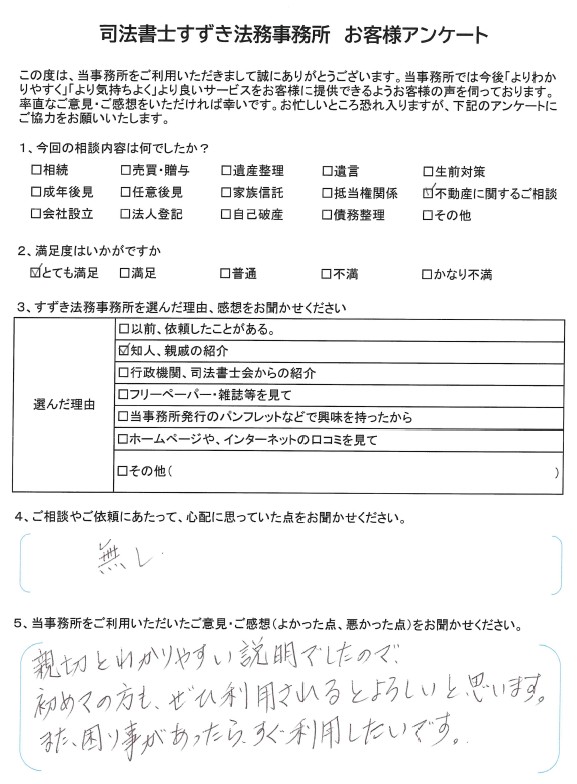 司法書士すずき法務事務所　お客様アンケート
この度は、当事務所をご利用いただきまして誠にありがとうございます。当事務所では今後「よりわか
りやすく」「より気持ちよく」より良いサービスをお客様に提供できるようお客様の声を伺っております。
率直なご意見・ご感想をいただければ幸いです。お忙しいところ恐れ入りますが、下記のアンケートに
ご協力をお願いいたします。
１、今回の相談内容は何でしたか？
□相続　□売買・贈与　□遺産整理　□遺言　□生前対策
□成年後見　□任意後見　□家族信託　□抵当権関係　☑不動産に関するご相談
□会社設立　□法人登記　□自己破産　□債務整理　□その他
２、満足度はいかがですか
☑とても満足　□満足　□普通　□不満　□かなり不満
３、すずき法務事務所を選んだ理由、感想をお聞かせください
選んだ理由
□以前、依頼したことがある。
☑知人、親戚の紹介
□行政機関、司法書士会からの紹介
□フリーペーパー・雑誌等を見て
□当事務所発行のパンフレットなどで興味を持ったから
□ホームページや、インターネットの口コミを見て
□その他（　　　）
４、ご相談やご依頼にあたって、心配に思っていた点をお聞かせください。
無し.
５、当事務所をご利用いただいたご意見・ご感想（よかった点、悪かった点）をお聞かせください。
親切とわかりやすい説明でしたので、
初めての方も、ぜひ利用されるとよろしいと思います。
また、困り事があったら、すぐ利用したいです。